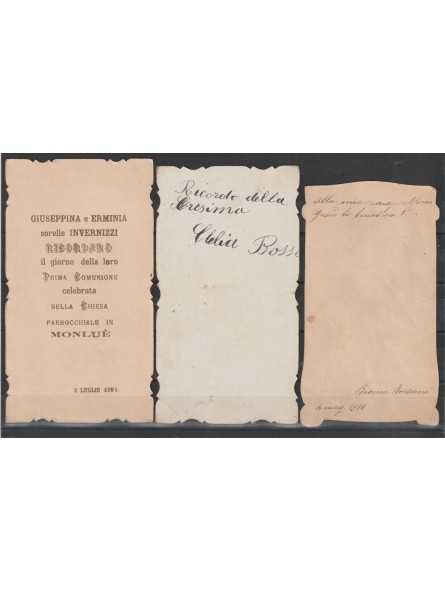 GIUSEPPINA e ERMINIA
sorelle INVERNIZZI
RICORDANO
il giorno della loro
PRIMA COMUNIONE
celebrata
NELLA CHIESA
PARROCCHIALE IN
MONLUÈ
LUGLIO
Ricordo della
Cresima
Clelia Bossi
Alla mia cara
Gesù ti